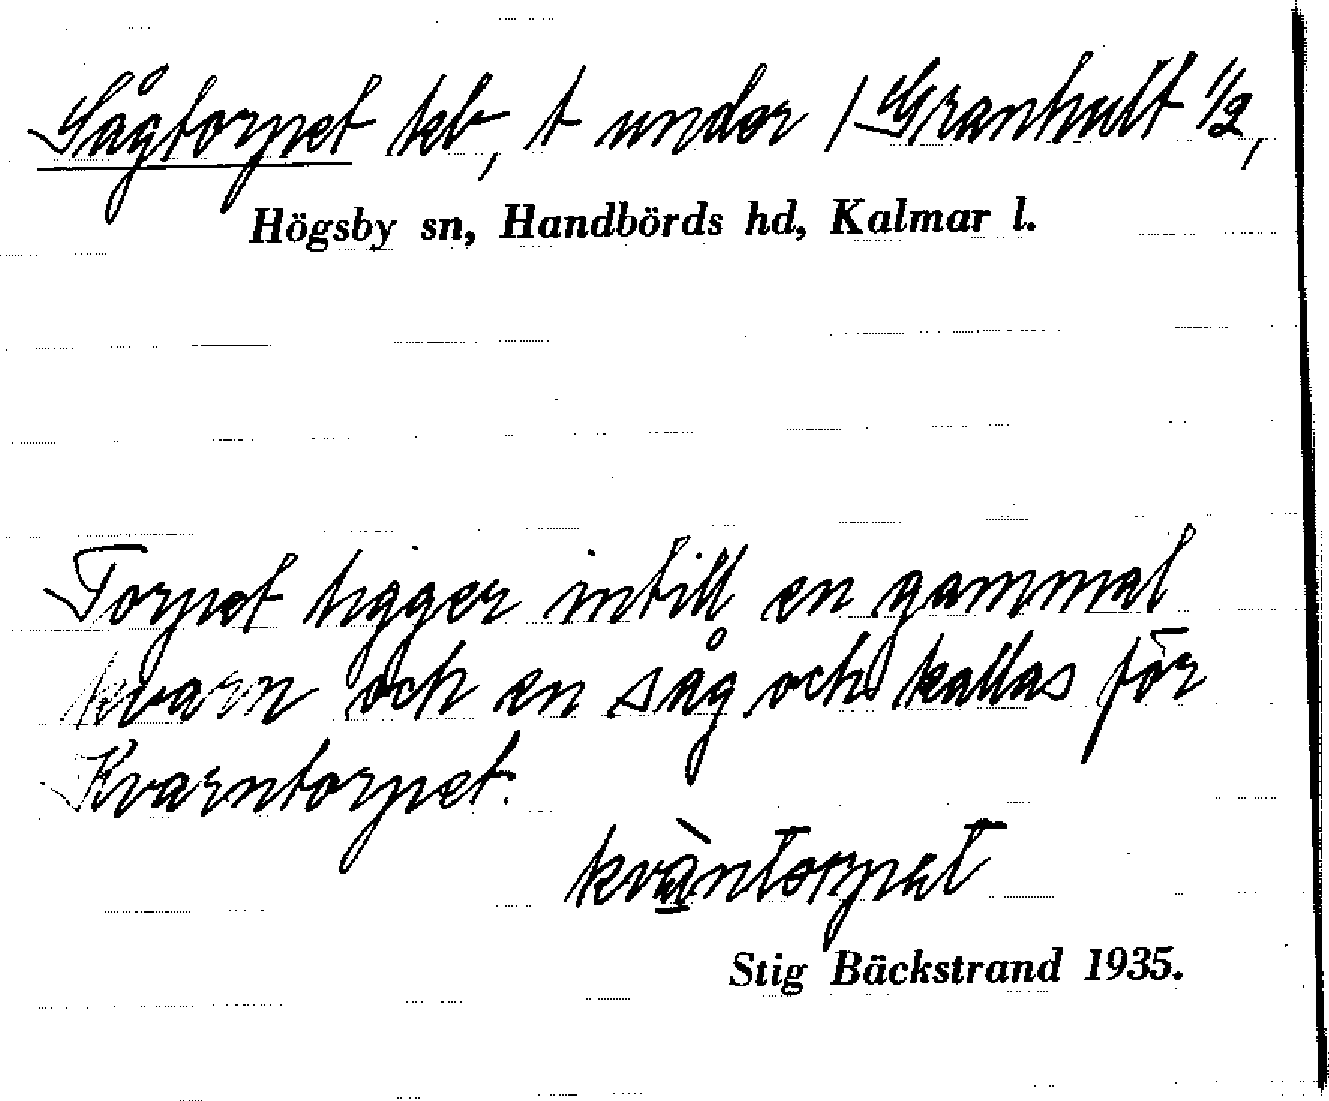 Sågtorpet kb, t under / Granhult 1/2,
Högsby sn, Handbörds hd, Kalmar l.
Torpet ligger intill en gammal
kvarn och en såg och kallas för
Kvarntorpet.
kvàntorpet
Stig Bäckstrand 1935.